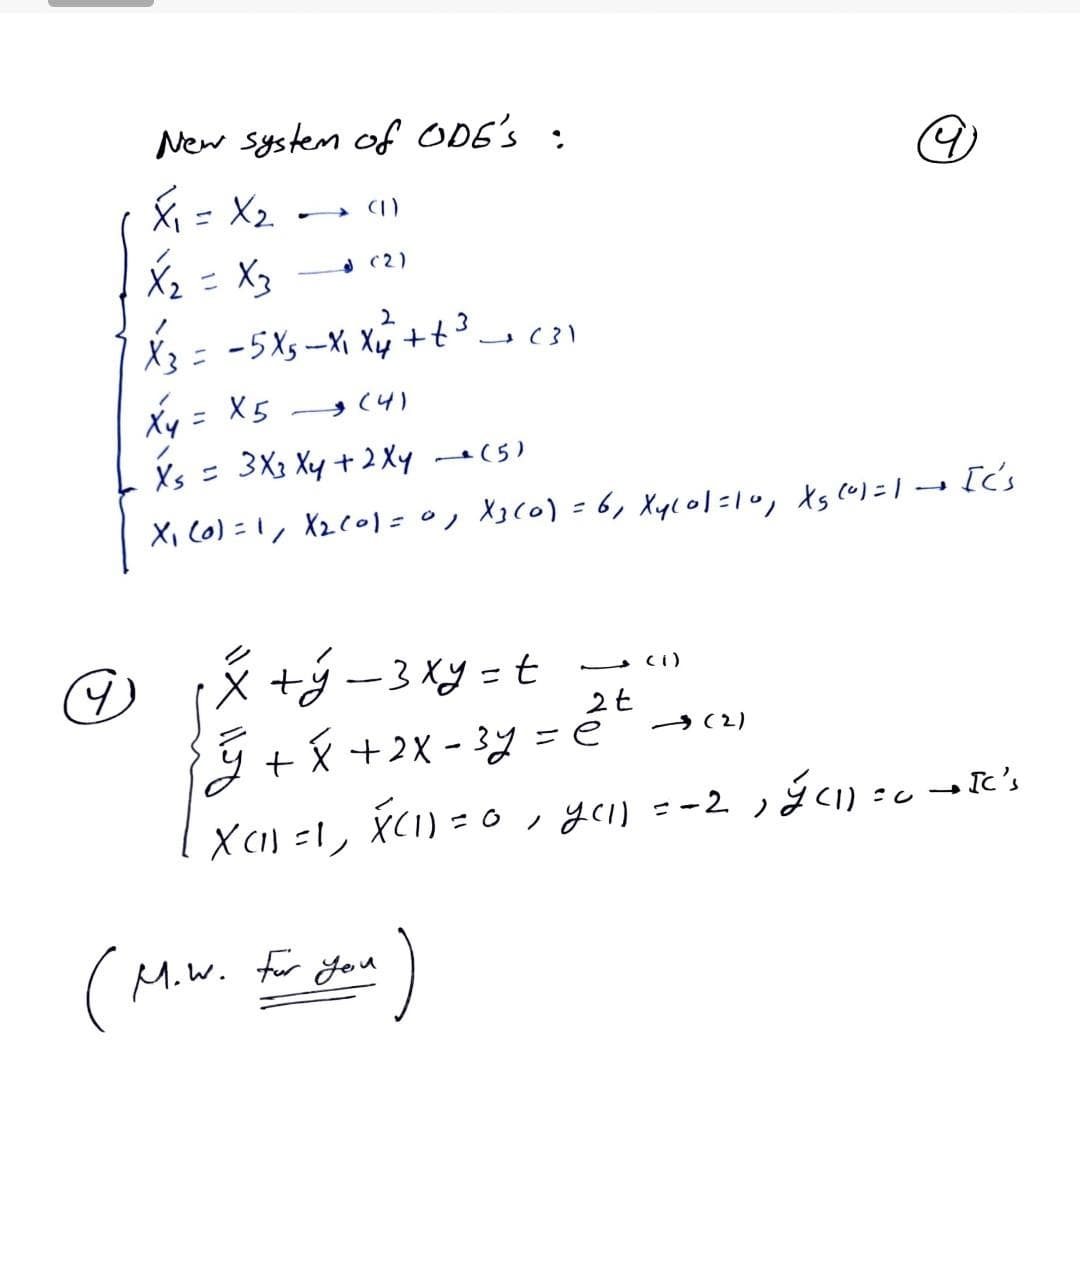 New system of ODE's : (4)
x₁′ = x₂ → (1)
x₂′ = x₃ → (2)
x₃′ = -5x₅ - x₁ x₄² + t³ → (3)
x₄′ = x₅ → (4)
x₅′ = 3x₃ x₄ + 2x₄ → (5)
x₁(0) = 1, x₂(0) = 0, x₃(0) = 6, x₄(0) = 10, x₅(0) = 1 → IC's
(4) x″ + y′ - 3xy = t → (1)
y″ + x′ + 2x - 3y = e²ᵗ → (2)
x(1) = 1, x′(1) = 0, y(1) = -2, y′(1) = 0 → IC's
(H.W. For you)